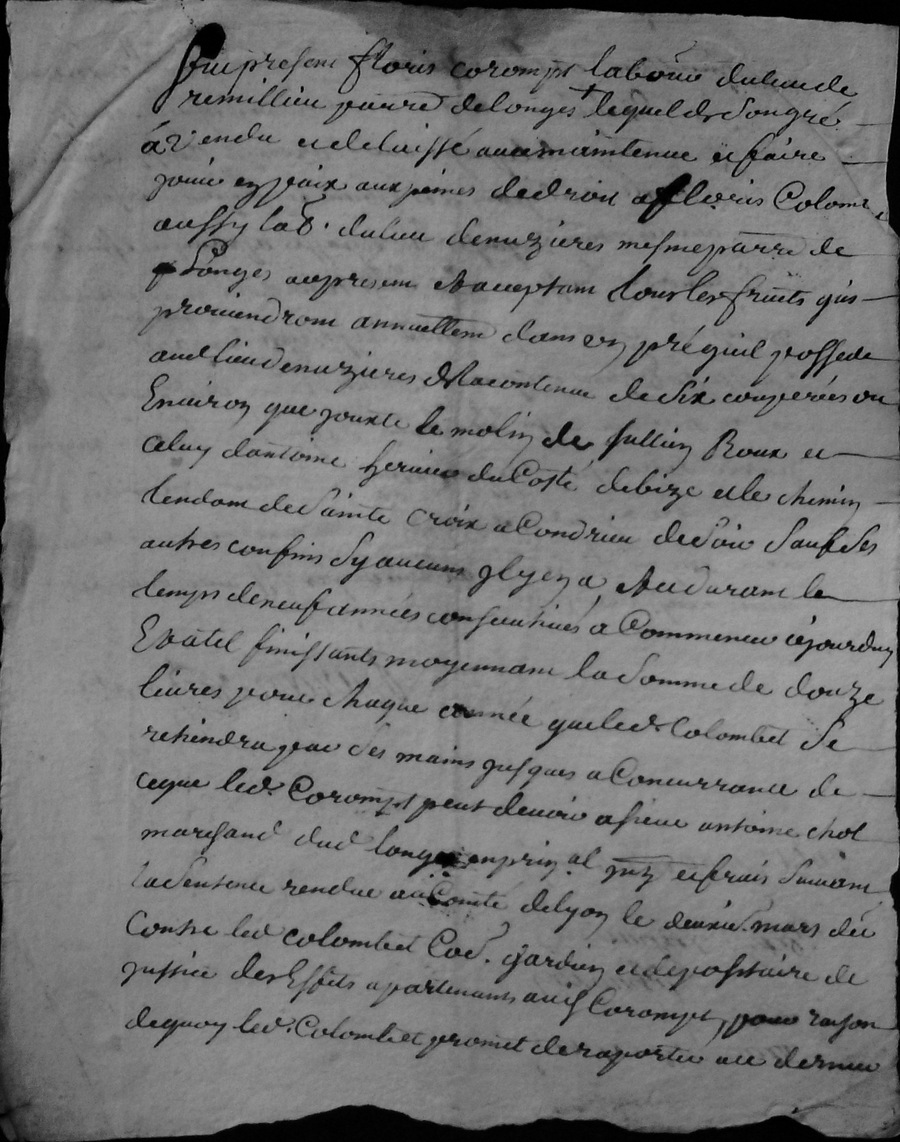 fut present floris corompt labour du lieu de
remillieu parre de longes lequel de son gré
a vendu et delaissé avec maintenue et faire
jouir en paix aux peines de droit a floris Colombet
aussy lab.r du lieu denuzieres mesme parre de
Longes au present et acceptant tous les fruits quis
proviendront annuellem dans un pré quil possede
aud lieu denuzieres de la contenue de Six couperées ou
Environ que jouxte le molin de Jullien Roux et
celuy dantoine herieu du Costé de bize et le chemin
tendant de Sainte Croix a Condrieu de Soir Sauf Ses
autres confins Sy aucuns y en a, et ce durant le
temps de neuf années consecutives a Commencer ajourdhuy
Et a tel finissants moyennant la Somme de douze
livres pour chaque année que led Colombet Se
retiendra par Ses mains jusques a Concurrance de
ceque led. Corompt peut devoir a sieur antoine chol
marchand dud longes en prin.al intz et frais Suivant
la Sentence rendue au Comté de lyon le mars der
Contre led colombet Coe. gardien et depositaire de
justice des Effets apartenants aud Corompt, pour rayson
dequoy led. Colombet promet de raporter au dernier